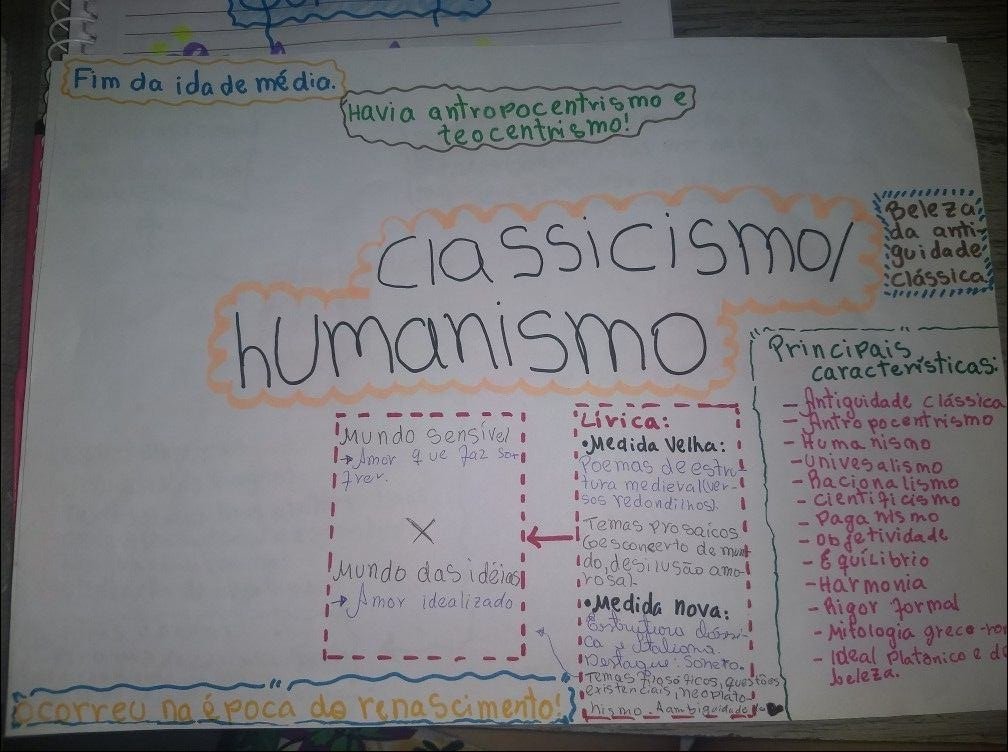 Fim da idade média.
Havia antropocentrismo e
teocentrismo!
Classicismo/
humanismo
Beleza
da anti-
guidade
clássica
Principais
características:
- Antiguidade clássica
- Antropocentrismo
- Humanismo
- Univesalismo
- Racionalismo
- cientificismo
- Paganismo
- Objetividade
- Equilíbrio
- Harmonia
- Rigor formal
- Mitologia greco-ro
- Ideal Platônico e d
beleza.
Lírica:
• Medida Velha:
Poemas de estru-
tura medieval (ver-
sos redondilhos).
Temas prosaicos
(desconcerto de mun
do, desilusão amo-
rosa).
• Medida nova:
Estrutura clássi-
ca, italiana.
Destaque: Soneto.
Temas filosóficos, questões
existenciais, neoplato
nismo. A ambiguidade do
Mundo sensível
→ Amor que faz sof
frer.
X
Mundo das idéias
→ Amor idealizado
Ocorreu na época do renascimento!